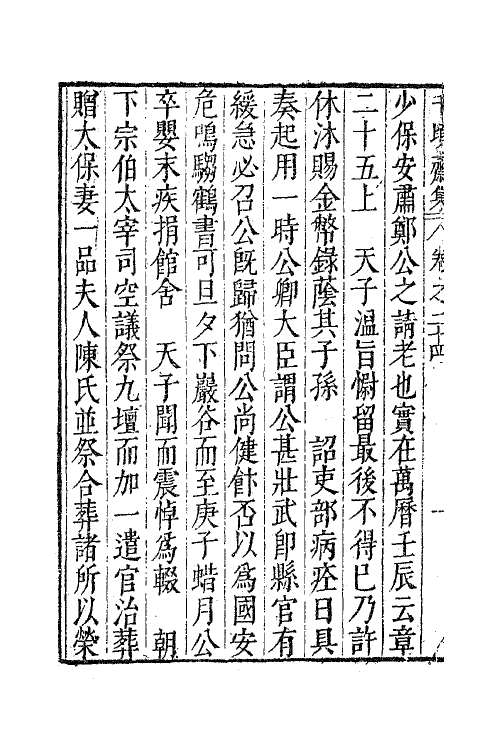 齋集 卷之二十四
少保安肅鄭公之請老也實在萬曆壬辰云章
二十五上 天子溫旨慰留最後不得已乃許
休沐賜金幣錄蔭其子孫 詔吏部病痊日具
奏起用一時公卿大臣謂公甚壯武卽縣官有
緩急必召公旣歸猶問公尚健飰否以爲國安
危鳴騶鶴書可旦夕下巖谷而至庚子蜡月公
卒嬰末疾捐館舍 天子聞而震悼爲輟 朝
下宗伯太宰司空議祭九壇而加一遣官治葬
贈太保妻一品夫人陳氏並祭合葬諸所以榮